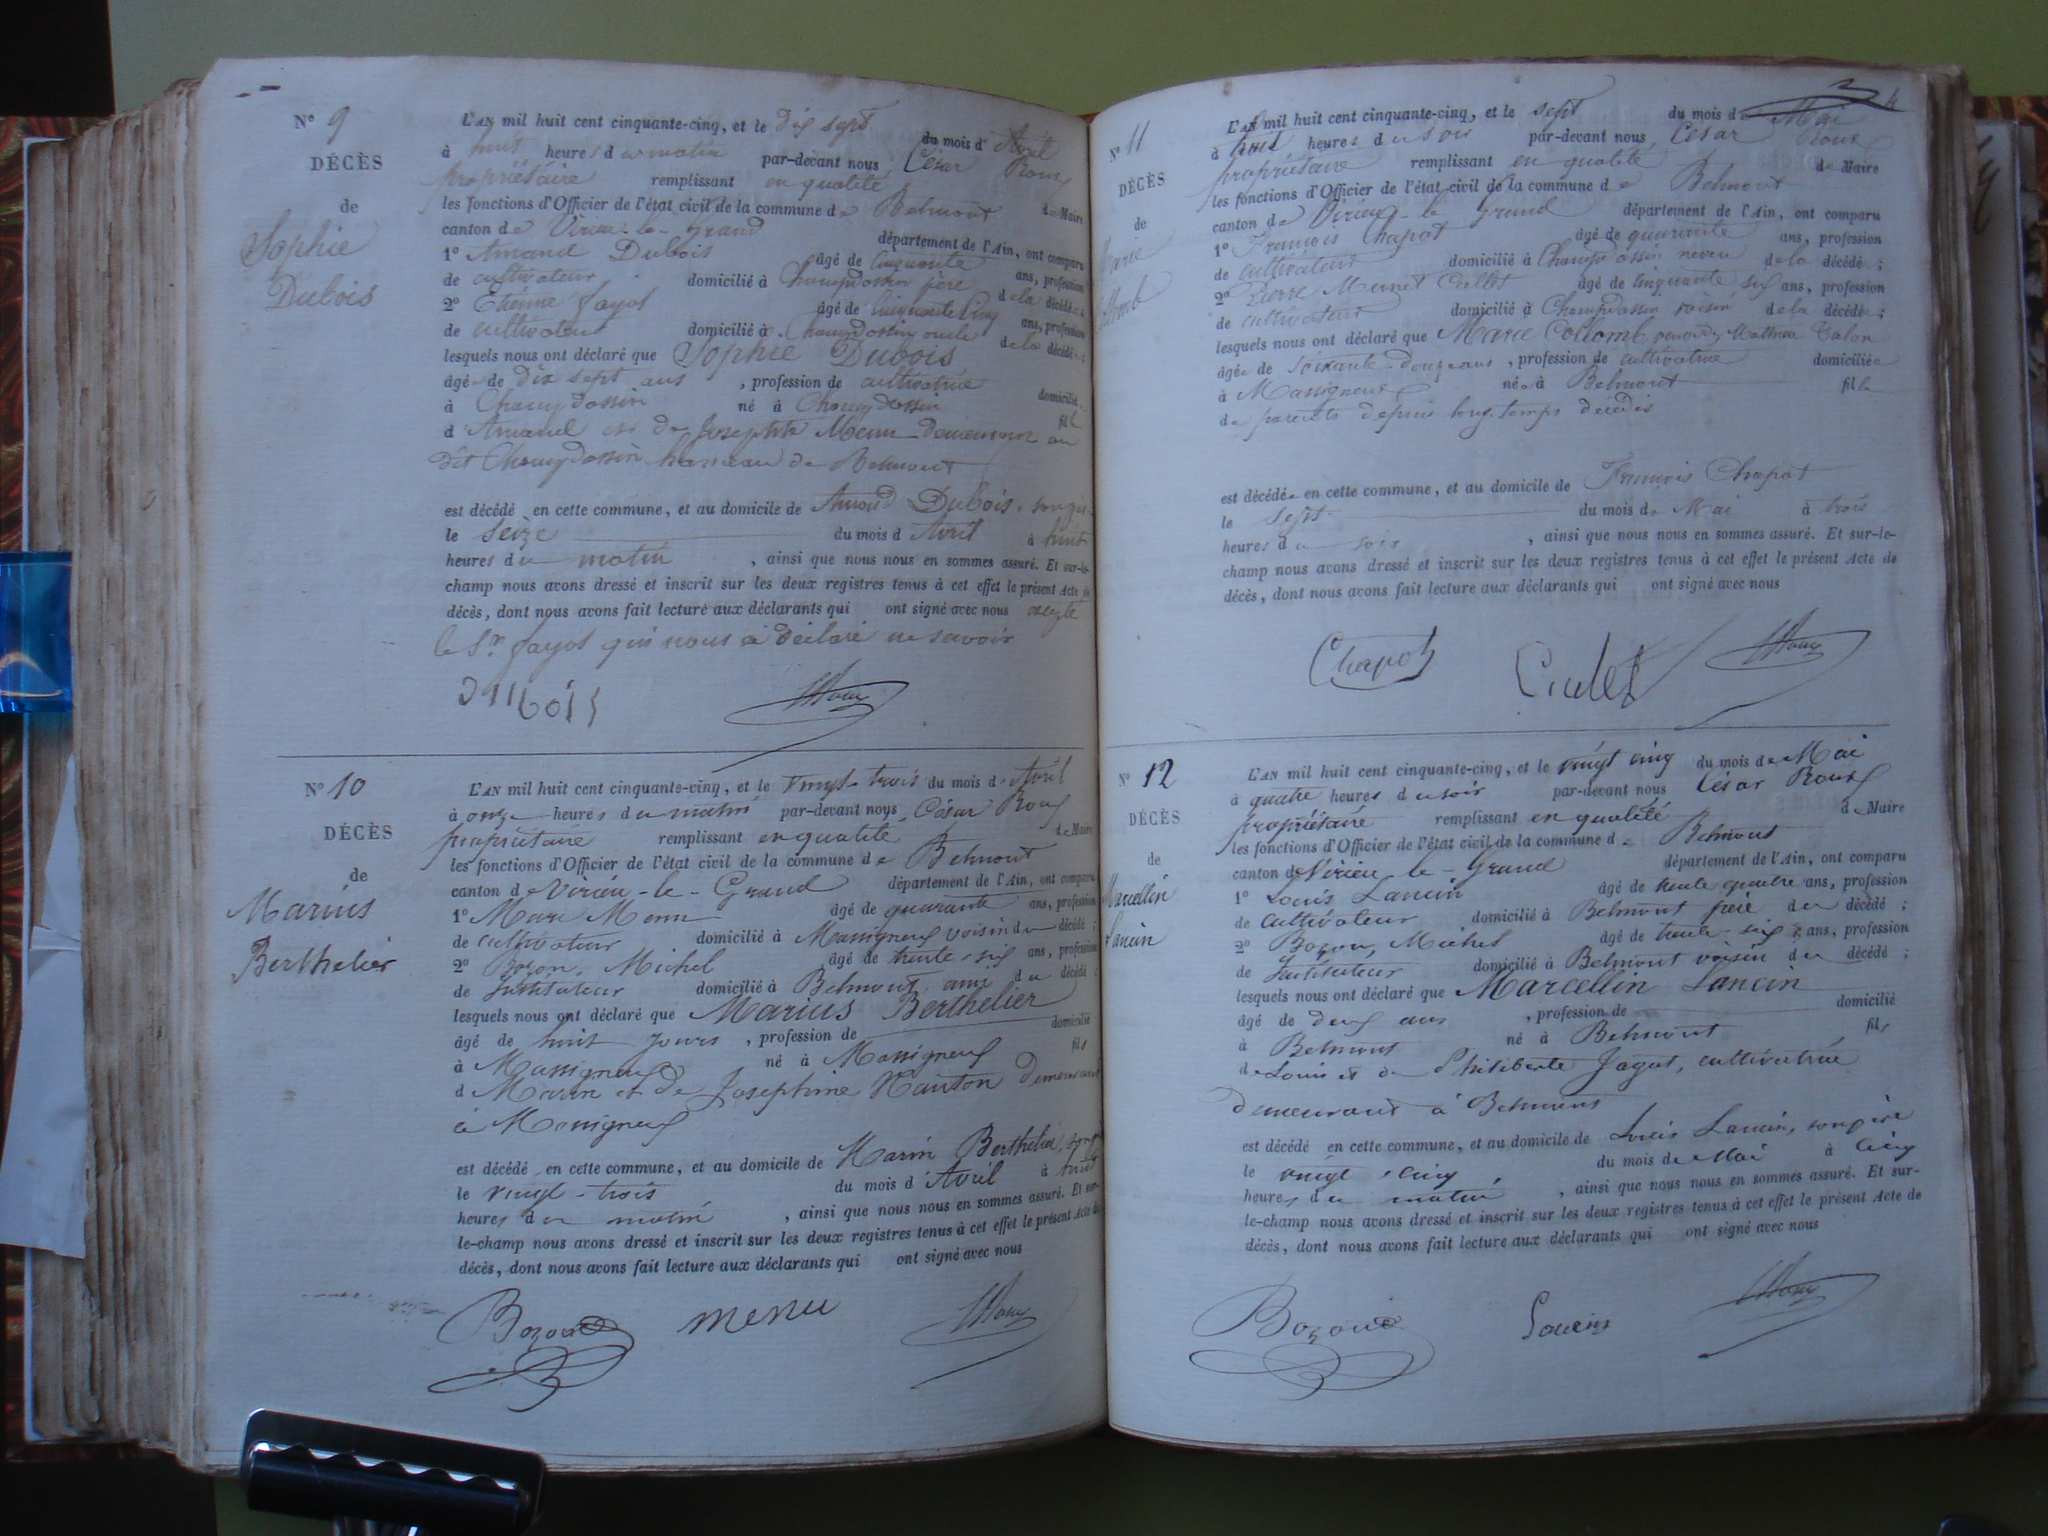 N° 9
DÉCÈS
de
Sophie
Dubois
L'AN mil huit cent cinquante-cinq, et le dix sept du mois d'Avril
à huit heures du matin par-devant nous César Roux
propriétaire remplissant en qualité de Maire
les fonctions d'Officier de l'état civil de la commune de Belmont
canton de Virieu-le-grand département de l'Ain, ont comparu
1° Amand Dubois âgé de cinquante ans, profession
de cultivateur domicilié à Champdossin père de la décédée
2° Etienne Jayot âgé de cinquante cinq ans, profession
de cultivateur domicilié à Champdossin oncle de la décédée
lesquels nous ont déclaré que Sophie Dubois
âgée de dix sept ans , profession de cultivatrice domiciliée
à Champdossin né à Champdossin fille
d'Amand et de Josephte Menu demeurant au
dit Champdossin hameau de Belmont
est décédé en cette commune, et au domicile de Amand Dubois, son père
le seize du mois d'Avril à huit
heures du matin , ainsi que nous nous en sommes assuré. Et sur-le-
champ nous avons dressé et inscrit sur les deux registres tenus à cet effet le présent Acte de
décès, dont nous avons fait lecture aux déclarants qui ont signé avec nous excepté
le Sr Jayot qui nous a déclaré ne savoir
Dubois Roux
N° 10
DÉCÈS
de
Marius
Berthelier
L'AN mil huit cent cinquante-cinq, et le vingt-trois du mois d'Avril
à onze heures du matin par-devant nous César Roux
propriétaire remplissant en qualité de Maire
les fonctions d'Officier de l'état civil de la commune de Belmont
canton de Virieu-le-Grand département de l'Ain, ont comparu
1° Marc Menu âgé de quarante ans, profession
de cultivateur domicilié à Massigneux voisin du décédé ;
2° Bozon, Michel âgé de trente-six ans, profession
de Instituteur domicilié à Belmont, ami du décédé ;
lesquels nous ont déclaré que Marius Berthelier
âgé de huit jours , profession de domicilié
à Massigneux né à Massigneux fils
de Marin et de Josephine Nanton demeurant
à Massigneux
est décédé en cette commune, et au domicile de Marin Berthelier, son père
le vingt-trois du mois d'Avril à huit
heures du matin , ainsi que nous nous en sommes assuré. Et sur-
le-champ nous avons dressé et inscrit sur les deux registres tenus à cet effet le présent Acte de
décès, dont nous avons fait lecture aux déclarants qui ont signé avec nous
Bozon menu Roux
4
N° 11
DÉCÈS
de
Marie
Collomb
L'AN mil huit cent cinquante-cinq, et le sept du mois de Mai
à huit heures du soir par-devant nous, César Roux
propriétaire remplissant en qualité de Maire
les fonctions d'Officier de l'état civil de la commune de Belmont
canton de Virieu-le-Grand département de l'Ain, ont comparu
1° François Chapot âgé de quarante ans, profession
de cultivateur domicilié à Champdossin neveu de la décédée ;
2° Pierre Cullet âgé de cinquante six ans, profession
de cultivateur domicilié à Champdossin voisin de la décédée ;
lesquels nous ont déclaré que Marie Collomb
âgée de soixante-douze ans , profession de cultivatrice domiciliée
à Massigneux née à Belmont fille
de parents depuis long-temps décédés
est décédée en cette commune, et au domicile de François Chapot
le sept du mois de Mai à trois
heures du soir , ainsi que nous nous en sommes assuré. Et sur-le-
champ nous avons dressé et inscrit sur les deux registres tenus à cet effet le présent Acte de
décès, dont nous avons fait lecture aux déclarants qui ont signé avec nous
Chapot Culet Roux
N° 12
DÉCÈS
de
Marcellin
Lancin
L'AN mil huit cent cinquante-cinq, et le vingt cinq du mois de Mai
à quatre heures du soir par-devant nous César Roux
propriétaire remplissant en qualité de Maire
les fonctions d'Officier de l'état civil de la commune de Belmont
canton de Virieu-le-Grand département de l'Ain, ont comparu
1° Louis Lancin âgé de trente quatre ans, profession
de Cultivateur domicilié à Belmont père du décédé ;
2° Bozon, Michel âgé de trente-six ans, profession
de Instituteur domicilié à Belmont voisin du décédé ;
lesquels nous ont déclaré que Marcellin Lancin
âgé de deux ans , profession de domicilié
à Belmont né à Belmont fils
de Louis et de Philiberte Jayot, cultivatrice
demeurant à Belmont
est décédé en cette commune, et au domicile de Louis Lancin, son père
le vingt cinq du mois de Mai à cinq
heures du matin , ainsi que nous nous en sommes assuré. Et sur-
le-champ nous avons dressé et inscrit sur les deux registres tenus à cet effet le présent Acte de
décès, dont nous avons fait lecture aux déclarants qui ont signé avec nous
Bozon Lancin Roux